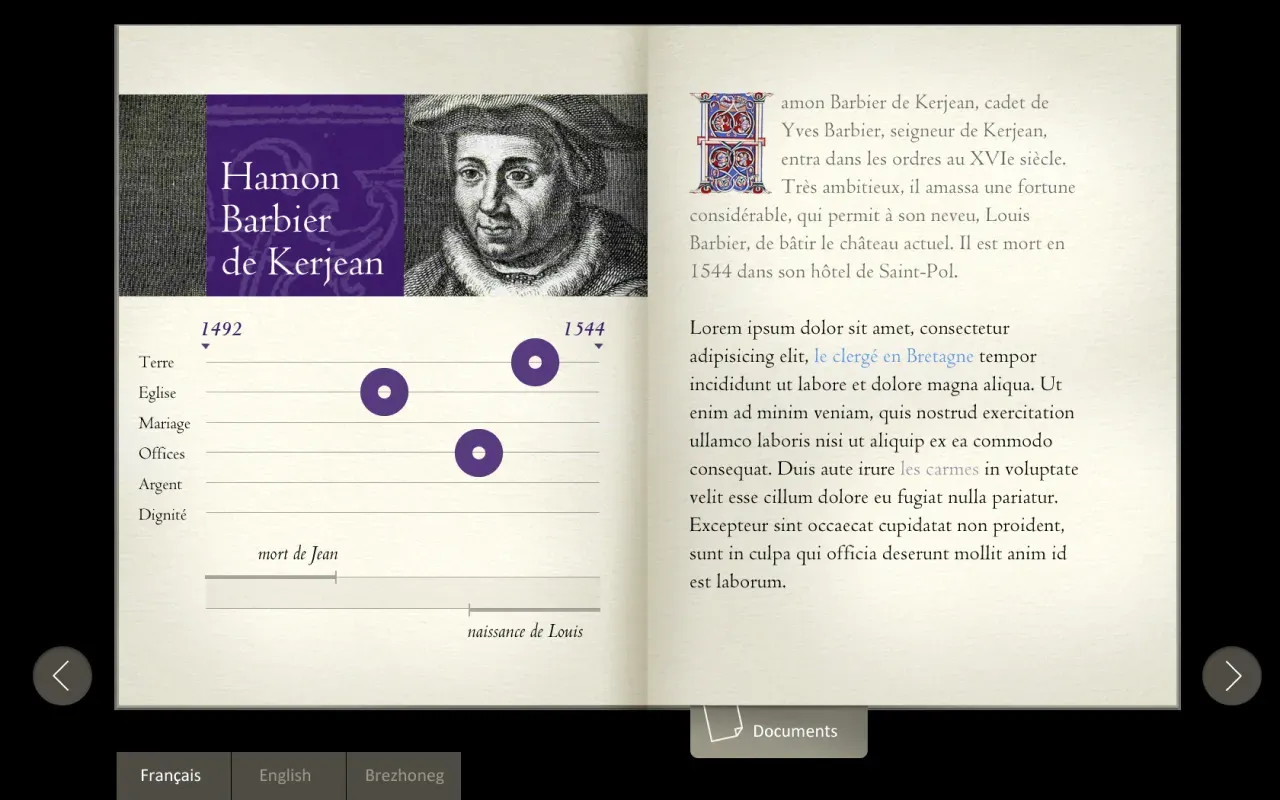 Hamon
Barbier
de Kerjean
1492
1544
Terre
Eglise
Mariage
Offices
Argent
Dignité
mort de Jean
naissance de Louis
Hamon Barbier de Kerjean, cadet de
Yves Barbier, seigneur de Kerjean,
entra dans les ordres au XVIe siècle.
Très ambitieux, il amassa une fortune
considérable, qui permit à son neveu, Louis
Barbier, de bâtir le château actuel. Il est mort en
1544 dans son hôtel de Saint-Pol.
Lorem ipsum dolor sit amet, consectetur
adipisicing elit, le clergé en Bretagne tempor
incididunt ut labore et dolore magna aliqua. Ut
enim ad minim veniam, quis nostrud exercitation
ullamco laboris nisi ut aliquip ex ea commodo
consequat. Duis aute irure les carmes in voluptate
velit esse cillum dolore eu fugiat nulla pariatur.
Excepteur sint occaecat cupidatat non proident,
sunt in culpa qui officia deserunt mollit anim id
est laborum.
Documents
Français
English
Brezhoneg